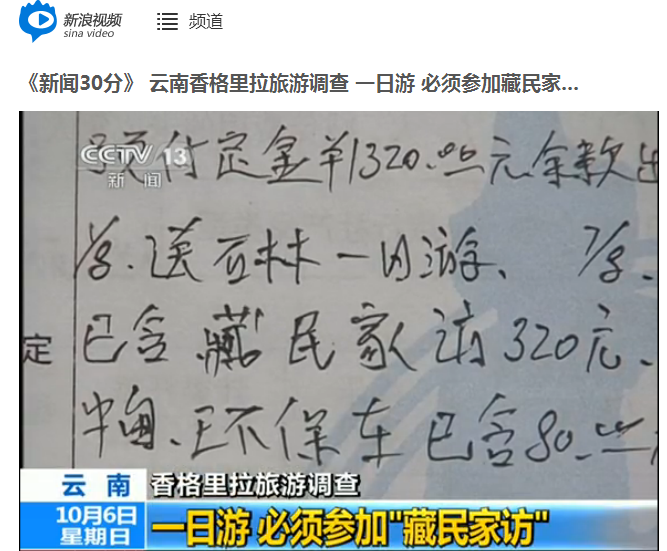 新浪视频
sina video
频道
《新闻30分》 云南香格里拉旅游调查 一日游 必须参加藏民家...
CCTV 13
新闻
预付定金￥1320.00元余款
送石林一日游、
定
已含藏民家访320元、
中甸、环保车已含80.
云南
香格里拉旅游调查
10月6日
星期日
一日游 必须参加"藏民家访"